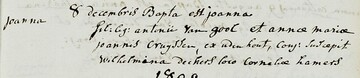 Joanna 8 decembris Bapta est joanna
filia antonii van gool et annæ mariæ
joannis Cruyssen ex udenhout, conj: suscepit
Wilhelmina Deckers loco Corneliæ hamers